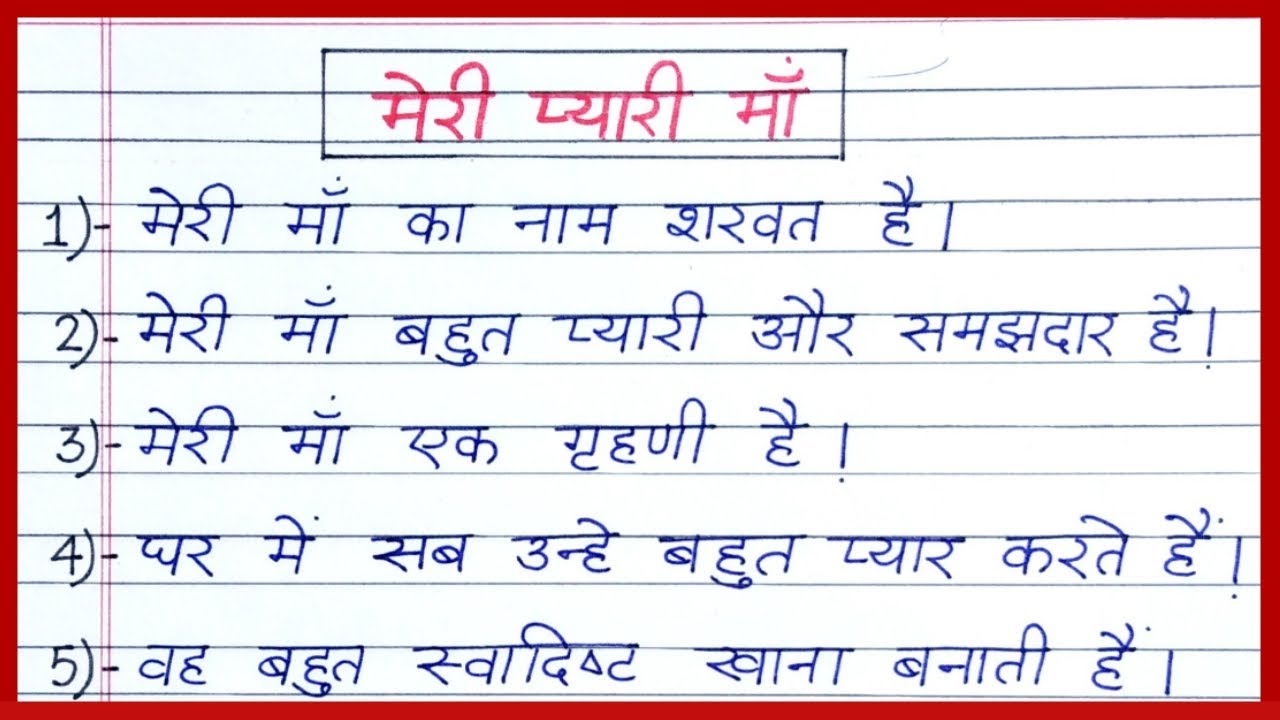 मेरी प्यारी माँ
1)- मेरी माँ का नाम शरवत है।
2)- मेरी माँ बहुत प्यारी और समझदार है।
3)- मेरी माँ एक गृहणी है।
4)- घर में सब उन्हे बहुत प्यार करते हैं।
5)- वह बहुत स्वादिष्ट खाना बनाती हैं।